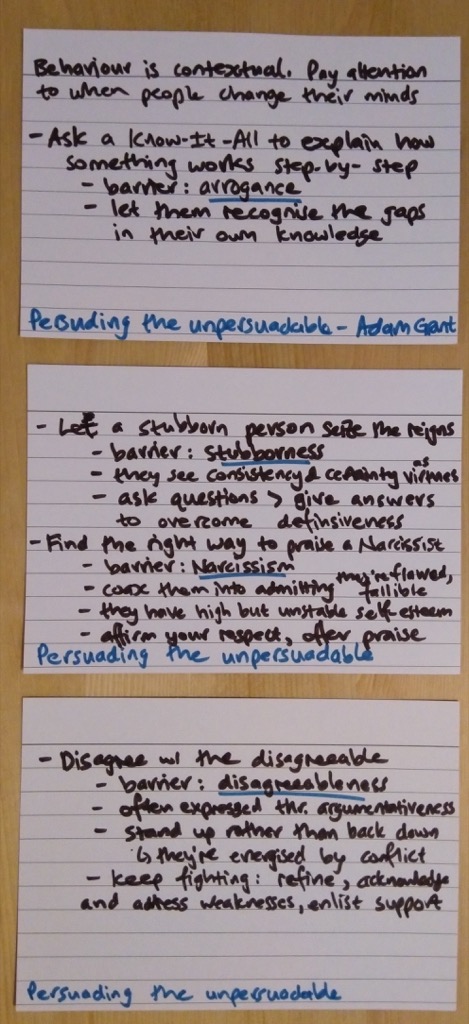 Behaviour is contextual. Pay attention
to when people change their minds
- Ask a Know-It-All to explain how
something works step-by-step
- barrier: arrogance
- let them recognise the gaps
in their own knowledge
Persuding the unpersuadable - Adam Grant
- Let a stubborn person seize the reigns
- barrier: stubborness
- they see consistency & certainty as virtues
- ask questions > give answers
to overcome definsiveness
- Find the right way to praise a Narcissist
- barrier: Narcissism
- coax them into admitting they're flawed, fallible
- they have high but unstable self-esteem
- affirm your respect, offer praise
Persuading the unpersuadable
- Disagree w/ the disagreeable
- barrier: disagreeableness
- often expressed thr. argumentativeness
- stand up rather than back down
↳ they're energised by conflict
- keep fighting: refine, acknowledge
and adress weaknesses, enlist support
Persuading the unpersuadable